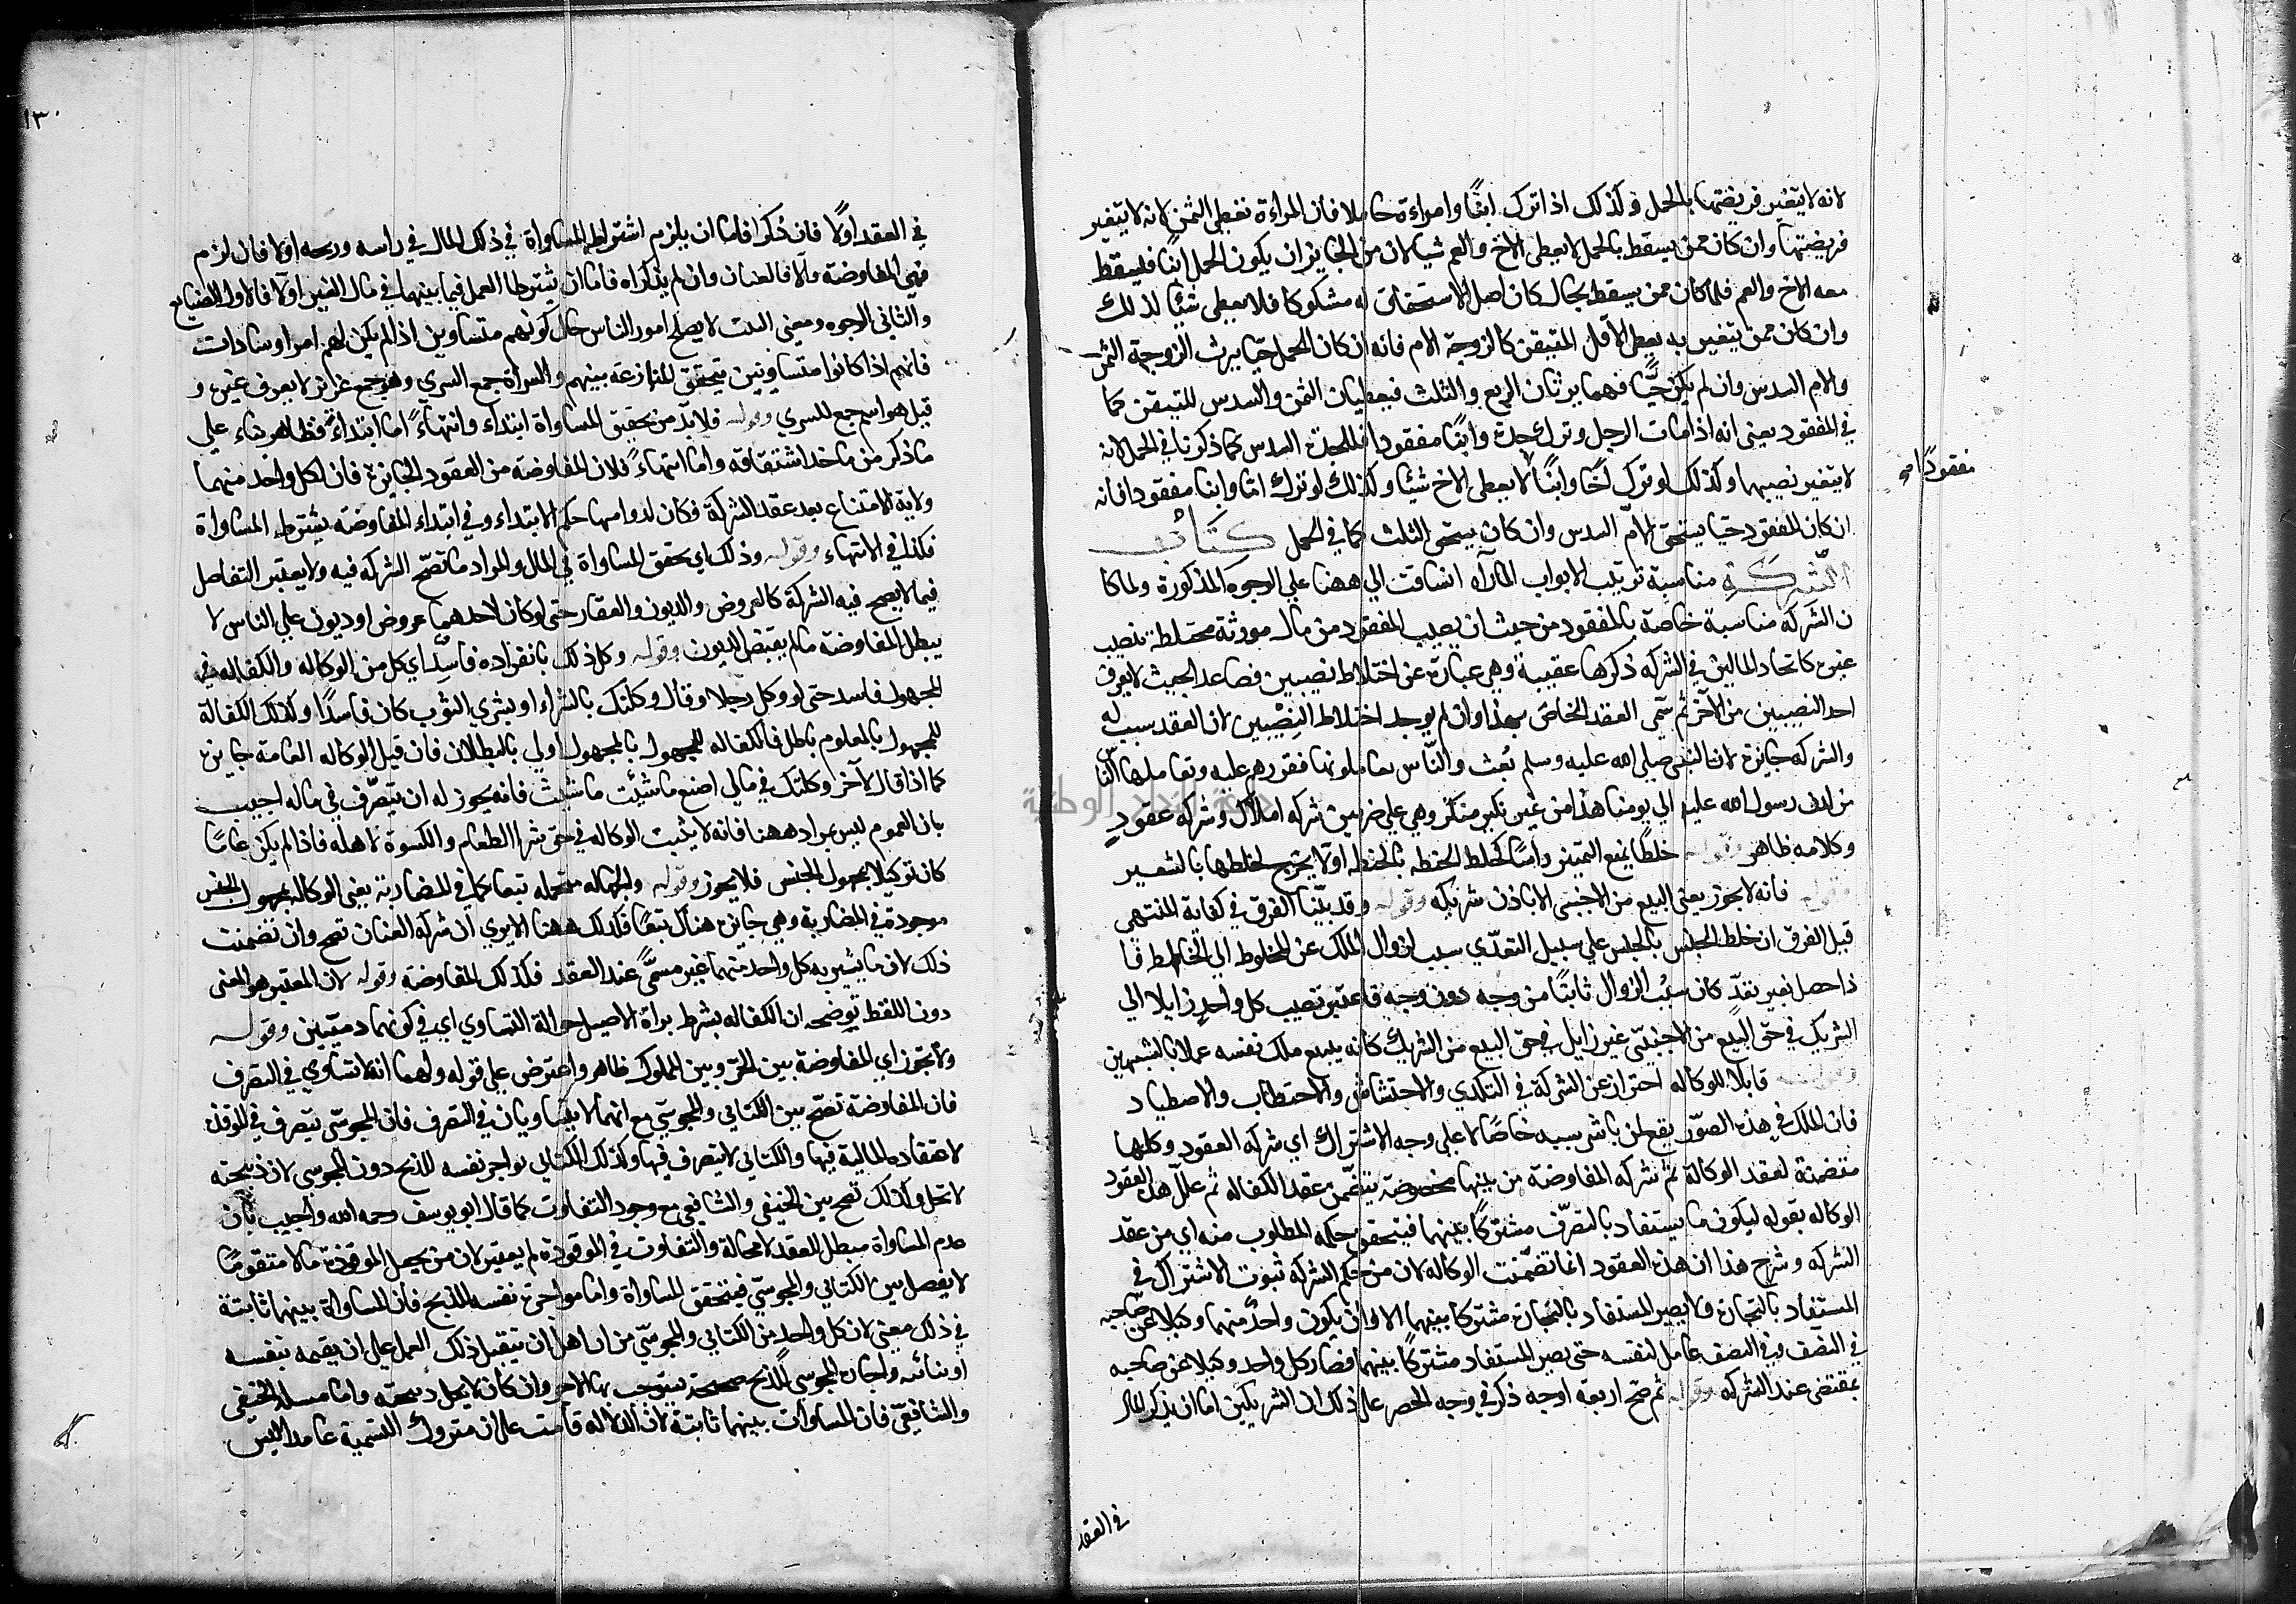 لانه لا يتغير فريضتها بالحمل وكذلك اذا ترك ابنًا وامراءة حاملا فان المراءة تعطى الثمن لانه لا يتغير
فريضتها وان كان ممن يسقط بالحمل لا يعطى الاخ والعم شيا لان من الجايز ان يكون الحمل ابنًا فيسقط
معه الاخ والعم فلما كان ممن يسقط بحال كان اصل الاستحقاق له مشكوكا فلا يعطى شيئًا لذلك
وان كان ممن يتغير به يعطى الاقل المتيقن كالزوجة الام فانه ان كان الحمل حيًا يرث الزوجة الثمن
والام السدس وان لم يكن حيًّا فهما يرثان الربع والثلث فيعطيان الثمن والسدس للتيقن كما
في المفقود يعنى انه اذا مات الرجل وترك جدة وابنًا مفقودا فللجدة السدس كما ذكرنا في الحمل لانه
لا يتغير نصيبها وكذلك لو ترك اخًا وابنًا لا يعطى الاخ شيئا وكذلك لو ترك امًا وابنا مفقودا فانه
مفقودًا
ان كان المفقود حيًا يستحق الامّ السدس وان كان يستحق الثلث كما في الحمل كتاب
الشركة مناسبة ترتيب الابواب المارّة انساقت الي ههنا علي الوجوه المذكورة ولما كا
ن الشركة مناسبة خاصّة بالمفقود من حيث ان نصيب المفقود من مال مورثه مختلطة بنصيب
غيره كاتحاد المالين في الشركه ذكرها عقيبه وهي عبارة عن اختلاط نصيبين فصاعدا بحيث لا يعرف
احد النصيبين من الآخر ثم سمّى العقد الخاصّ بهذا وان لم يوجد اختلاط النصيبين لان العقد سبب له
والشركه جايزة لان النبي صلى الله عليه وسلم بُعث والنّاس يعاملونها فقررهم عليه وتعاملها النّاس
من لدن رسول الله عليه الي يومنا هذا من غير نكير منكر وهي علي ضربين شركه املاك وشركة عقودٍ
وكلامه ظاهر وقوله خلطًا يمنع التميّز راسًا كخلط الحنطه بالحنطه اولا يخرج لخلطها بالشعير
وقوله فانه لا يجوز يعنى البيع من الاجنبى الا باذن شريكه وقوله وقد بيّنا الفرق في كفاية المنتهى
قيل الفرق ان خلط الجنس بالجنس علي سبيل التعدّي سبب لزوال الملك عن المخلوط الى الخالط فا
ذا حصل بغير تعدّ كان سبب الزوال ثابتًا من وجه دون وجه فاعتبر نصيب كل واحدٍ زايلا الي
الشريك في حق البيع من الاجنبىّ غير زايل في حق البيع من الشريك كانه يبيع ملك نفسه عملا بالشبهين
وقوله قابلا للوكاله احتراز عن الشركة في التكدي والاحتشاش والاحتطاب والاصطياد
فان الملك في هذه الصوّر يقع لمن باشر سببه خاصًا لا على وجه الاشتراك اي شركه العقود وكلها
متضمنة لعقد الوكالة ثم شركه المفاوضة من بينها مخصوصة بتضمّن عقد الكفاله ثم علّل هذه العقود
الوكاله بقوله ليكون ما يستفاد بالتصرّف مشتركًا بينهما فيتحقق حكمه المطلوب منه اي من عقد
الشركه وشرح هذا ان هذه العقود انما تضمّنت الوكاله لان من حكم الشركه ثبوت الاشتراك في
المستفاد بالتجارة ولا يصير المستفاد بالتجارة مشتركا بينهما الا وان يكون واحدٌ منهما وكيلا عن صاحبه
في النصّف وفي النصف عامل لنفسه حتى يصير المستفاد مشتركًا بينهما فصار كل واحد وكيلا عن صاحبه
بمقتضى عقد الشركه وقوله ثم صح اربعة اوجه ذكر في وجه الحصر على ذلك ان الشريكين اما ان يذكر المال
في العقد
١٣٠
في العقد اولًا فان ذُكرا فاما ان يلزم اشتراط المساواة في ذلك المال في راسه وربحه اولا فان لزم
فهي المفاوضة والّا فالعنان وان لم يذكراه فاما ان يشترطا العمل فيما بينهما في مال الغير اولا فالاول الصنايع
والثاني الوجوه ومعنى البيت لا يصلح امور الناس حال كونهم متساوين اذا لم يكن لهم امرا وسادات
فانهم اذا كانوا متساويين يتحقق المنازعة بينهم والسراة جمع السري وهو جمع عزيز لا يعرف غيره و
قيل هو اسم جمع للسري وقوله فلا بدّ من تحقيق المساواة ابتداء وانتهاءً اما ابتداءً فظاهر بناء علي
ما ذكر من ماخذ اشتقاقه واما انتهاءً فلان المفاوضه من العقود الجايزة فان لكل واحد منهما
ولاية الامتناع بعد عقد الشركة فكان لدوامها حكم الابتداء وفي ابتداء المفاوضه يشترط المساواة
فكذا في الانتهاء وقوله وذلك اي تحقق المساواة في المال والمراد ما تصحّ الشركه فيه ولا يعتبر التفاضل
فيما لا يصح فيه الشركة كالعروض والديون والعقار حتى لو كان لاحدهما عروض او ديون علي الناس لا
يبطل المفاوضة مالم يقبض الديون وقوله وكل ذلك بانفراده فاسدٌ اي كل من الوكاله والكفاله في
المجهول فاسد حتى لو وكل رجلا وقال وكلتك بالشراء او بشري الثوب كان فاسدًا وكذلك الكفالة
للمجهول بالمعلوم باطل فالكفاله للمجهول بالمجهول اولي بالبطلان فان قيل الوكاله العامة جايزة
كما اذا قال لآخر وكلتك في مالي اصنع ما شئت ما شئت فانه يجوز له ان يتصرّف في ماله اجيب
بان العموم ليس بمراد ههنا فانه لا يثبت الوكاله في حق شرا الطعام والكسوة لاهله فاذا لم يكن عامًا
كان توكيلا بمجهول الجنس فلا يجوز وقوله والجهاله متحمله تبعا كما في المضاربة يعنى الوكاله بمجهول الجنس
موجودة في المضاربة وهي جايزة هناك تبعًا فكذلك ههنا الا يري ان شركة العنان تصح وان تضمنت
ذلك لان ما يشتريه كل واحد منهما غير مسمًّى عند العقد فكذلك المفاوضة وقوله لان المعتبر هو المعنى
دون اللفظ توضحه ان الكفاله بشرط براة الاصيل حوالة التساوي اي في كونهما دميّين وقوله
ولا تجوز اي المفاوضة بين الحرّ وبين المملوك ظاهر واعترض علي قوله ولهما انه لا تساوي في التصرف
فان المفاوضة تصحّ بين الكتابي والمجوسيّ مع انهما لا يتساويان في التصرف فان المجوسىّ يتصرف في الموقوذة
لاعتقاده المالية فيها والكتابي لا يتصرف فيها وكذلك الكتابي يواجر نفسه للذبح دون المجوسى لان ذبيحته
لا تحل وكذلك تصح بين الحنفي والشافعي مع وجود التفاوت كما قال ابو يوسف رحمه الله واجيب بان
عدم المساواة مبطل للعقد لا محالة والتفاوت في الموقوذة لم يعتبر لان من يجعل الموقوذة مالا متقومًا
لا يفصل بين الكتابي والمجوسيّ فيتحقق المساواة واما مواجرة نفسه للذبح فان المساواة بينهما ثابتة
في ذلك معنى لان كل واحد من الكتابي والمجوسىّ من اهل ان يتقبل ذلك العمل على ان يقيمه بنفسه
او بنائبه واجارة المجوسى للذبح صحيحة يستوجب بها الاجر وان كان لا يحل ذبيحته واما مسلة الحنفى
والشافعىّ فان المساوات بينهما ثابتة لان الدلالة قامت على ان متروك التسمية عامدا ليس